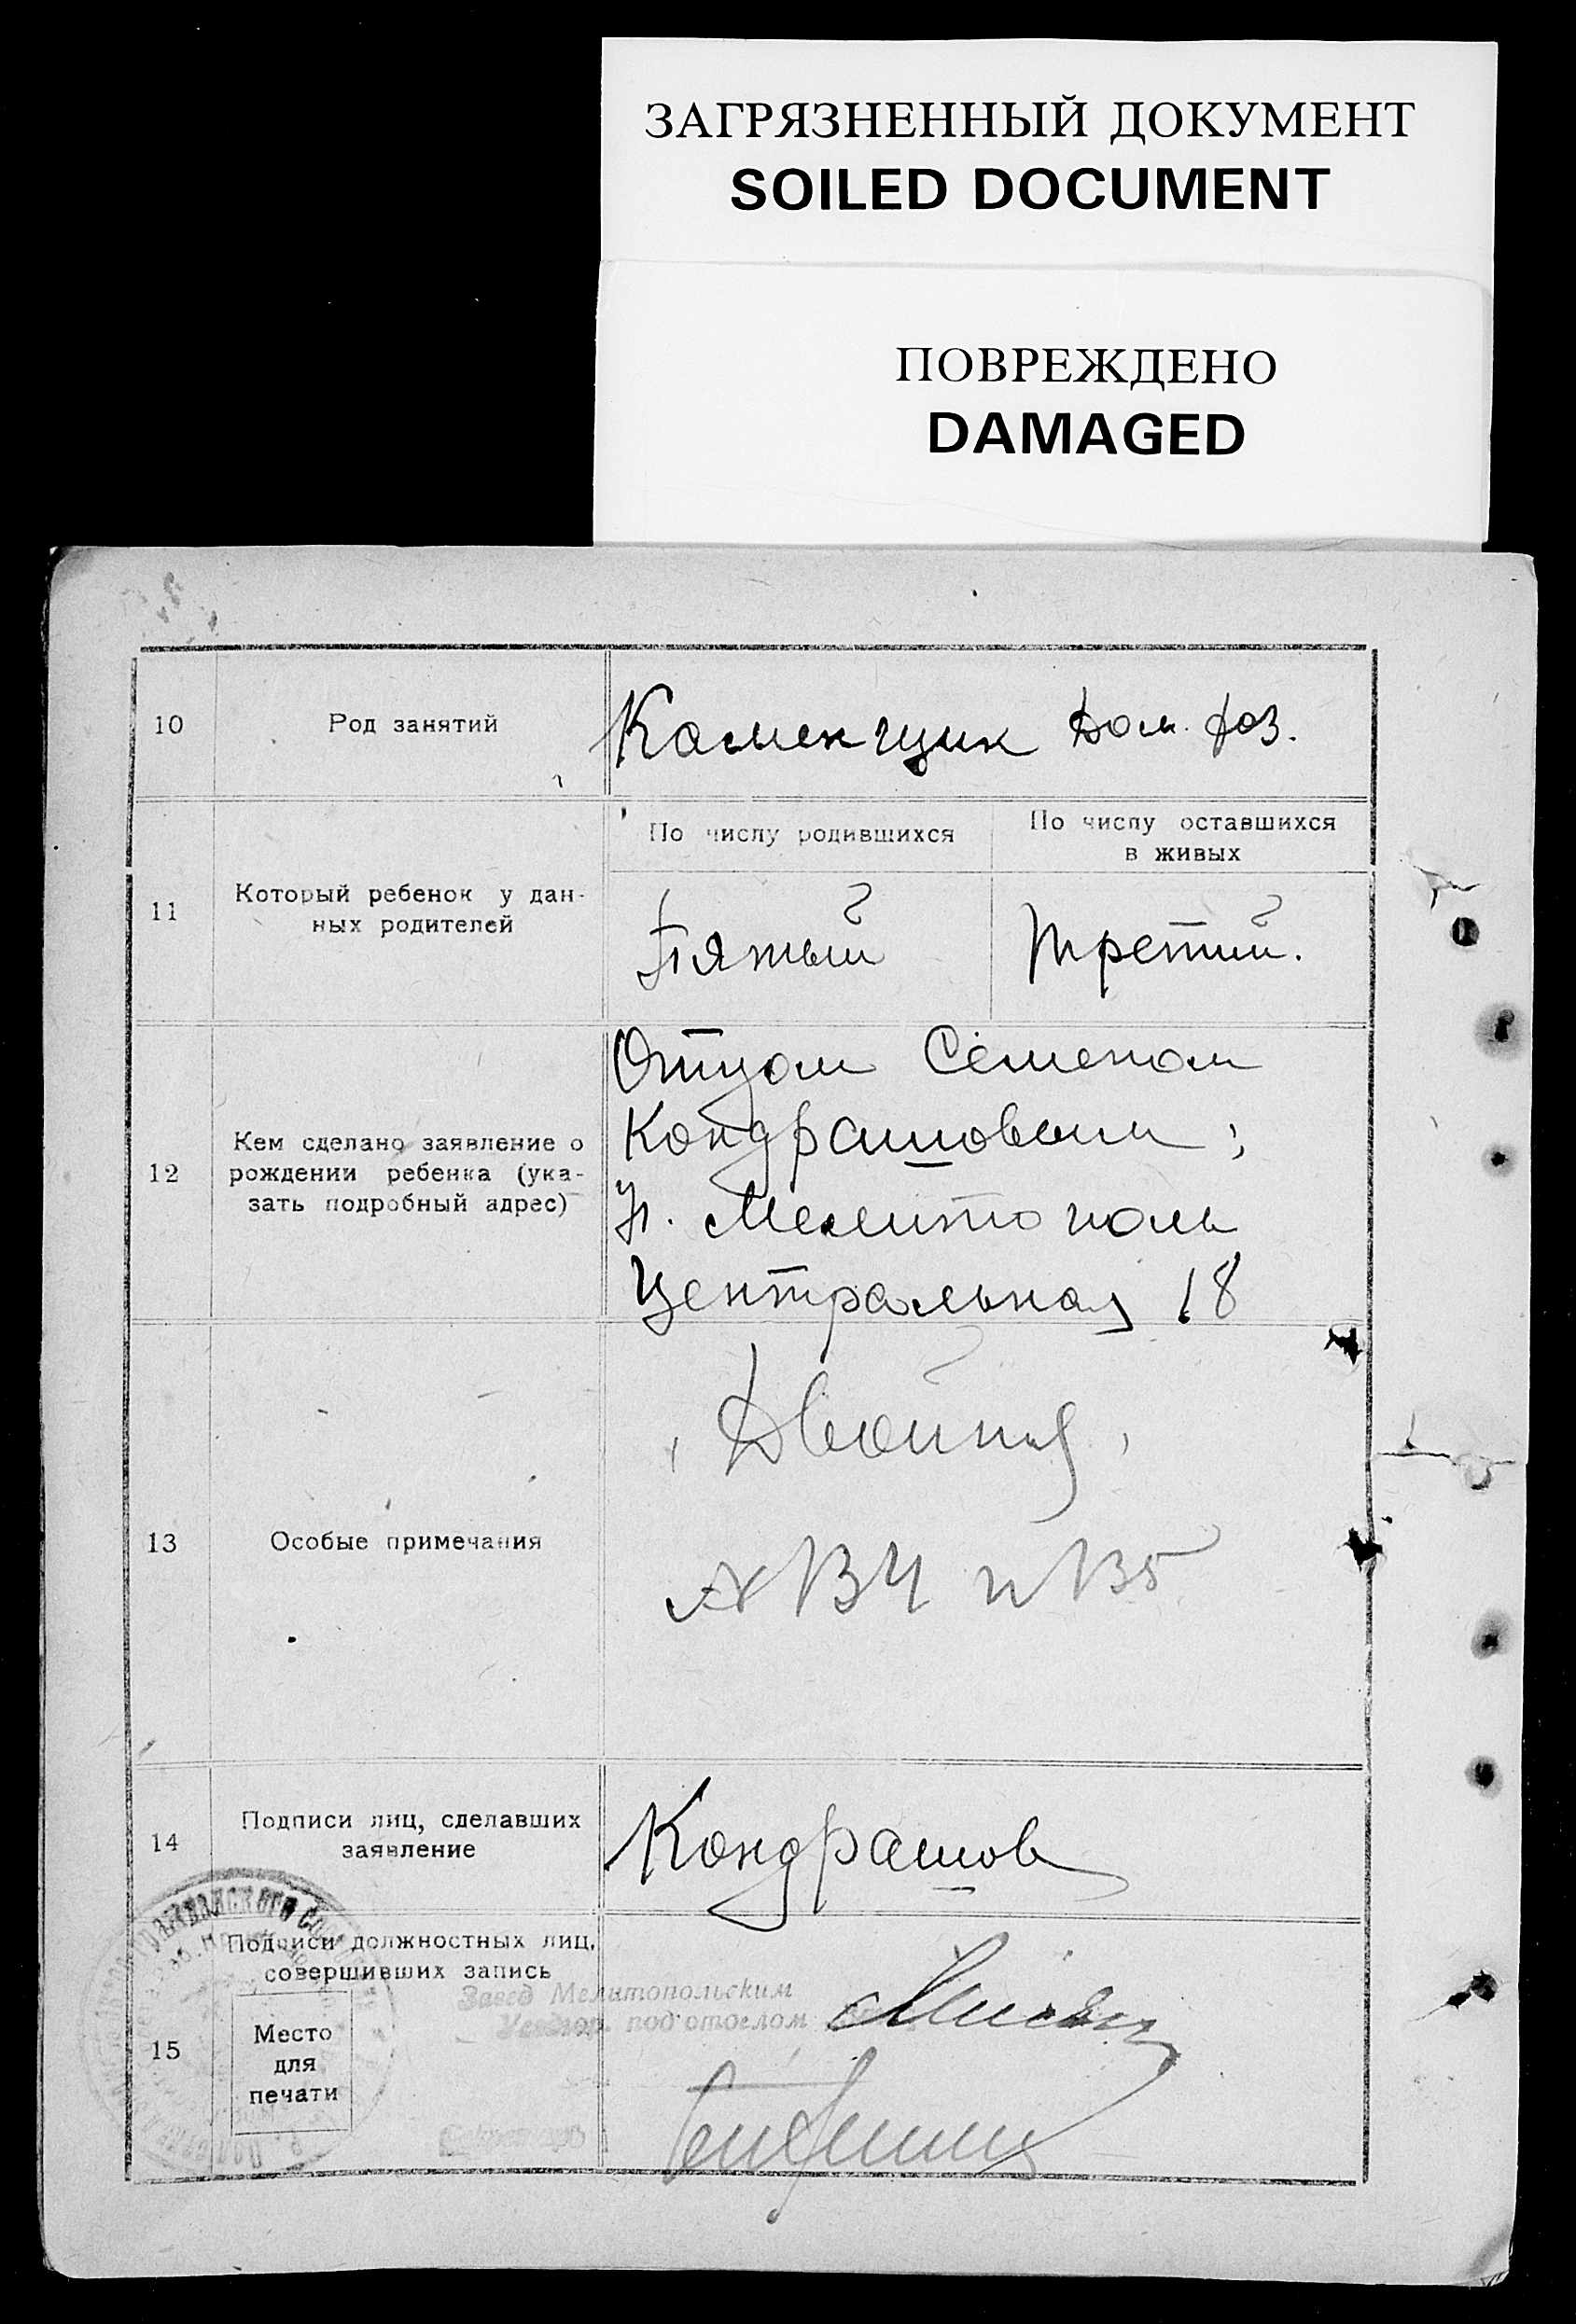 ЗАГРЯЗНЕННЫЙ ДОКУМЕНТ
SOILED DOCUMENT
ПОВРЕЖДЕНО
DAMAGED
10
Род занятий
Каменщик Дом. хоз.
11
Который ребенок у дан-
ных родителей
По числу родившихся
Пятый
По числу оставшихся
в живых
Третий.
12
Кем сделано заявление о
рождении ребенка (ука-
зать подробный адрес)
Отцом Семеном
Кондрашовым;
Мелитополь
Центральная 18
13
Особые примечания
Двойня
№ 134 и 135
14
Подписи лиц, сделавших
заявление
Кондрашов
15
Подписи должностных лиц,
совершивших запись
Место
для
печати
Завед Мелитопольским
под'отделом